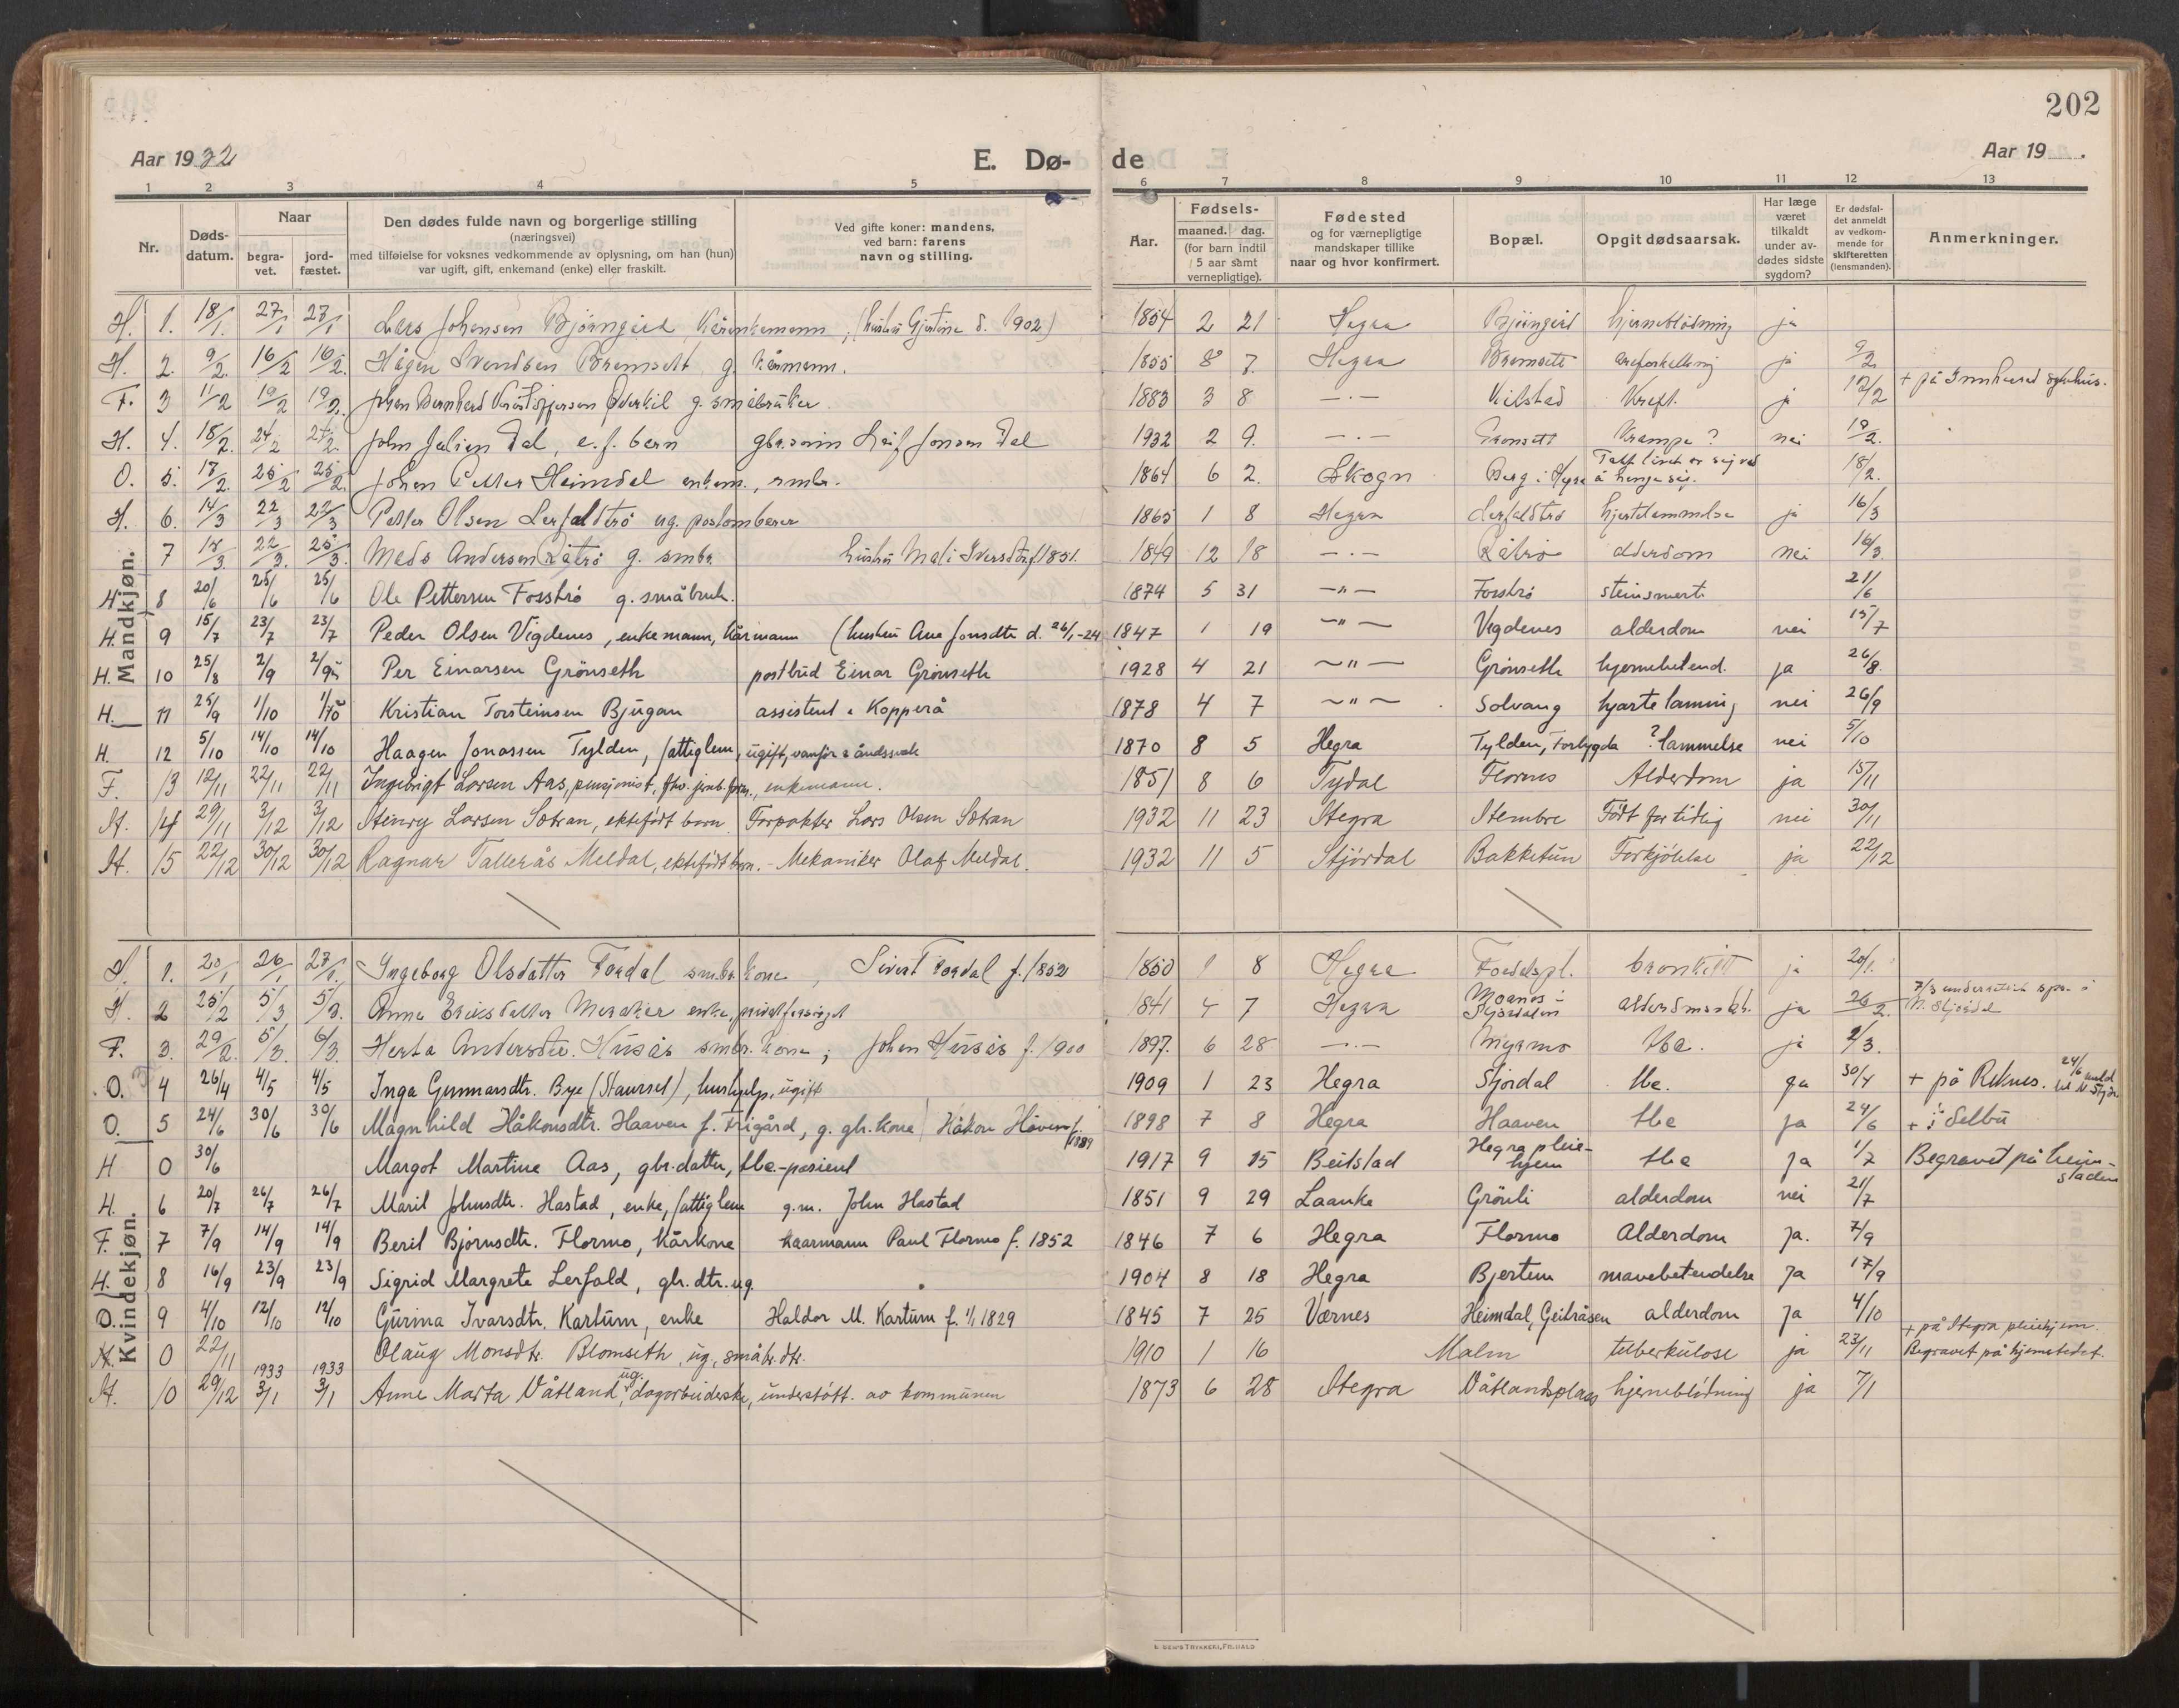 202
Aar 1932 E. Dø- de Aar 19
1 2 3 4 5 6 7 8 9 10 11 12 13
Nr. Døds-datum. Naar begra-vet. jord-fæstet. Den dødes fulde navn og borgerlige stilling (næringsvei) med tilføielse for voksnes vedkommende av oplysning, om han (hun) var ugift, gift, enkemand (enke) eller fraskilt. Ved gifte koner: mandens, ved barn: farens navn og stilling. Aar. Fødsels- maaned. dag. (for barn indtil 5 aar samt vernepligtige). Fødested og for værnepligtige mandskaper tillike naar og hvor konfirmert. Bopæl. Opgit dødsaarsak. Har læge været tilkaldt under av-dødes sidste sygdom? Er dødsfal-det anmeldt av vedkom-mende for skifteretten (lensmanden). Anmerkninger.
Mandkjøn.
H. 1. 18/1. 27/1 27/1 Lars Johansen Bjørngård, kårenkemann, (hustru Gjertine d. 1902) 1854 2 21 Hegra Bjørngård hjerneblødning ja
H. 2. 9/2. 16/2 16/2. Hågen Svendsen Bremsett g. kårmann. 1855 8 7. Hegra Bremsett åreforkalkning ja 9/2.
F. 3 11/2 19/2 19/2. Johan Bernhard g. småbruker 1883 3 8 —·— Kilstad Kreft. ja 12/2 + på Innherred sykehus.
H. 4. 18/2. 24/2 24/2. John Julien Dal, e.f. barn gbr.sønn Leif Jonsen Dal 1932 2 9. —·— Grønsett Krampe? nei 19/2.
O. 5. 17/2. 25/2 25/2. Johan Petter Heimdal enkem., smbr. 1864 6 2. Skogn Berg i Hegra Tatt livet av seg ved å henge seg. 18/2.
H. 6. 14/3 22/3 22/3 Petter Olsen Lerfaldtrø ug. postombærer 1865 1 8 Hegra Lerfaldtrø hjertelammelse ja 16/3
7 15/3. 22/3. 25/3. Mads Andersen Råtrø g. smbr. hustru Mali Iversdtr f. 1851. 1849 12 18 —·— Råtrø alderdom nei 16/3.
H 8 20/6 25/6 25/6 Ole Pettersen Fosstrø g. småbruk. 1874 5 31 —"— Fosstrø steinsmert. 21/6
H. 9 15/7 23/7 23/7 Peder Olsen Vigdenes, enkemann, kårmann (hustru Ane Jonsdtr d. 26/1-24 1847 1 19 —"— Vigdenes alderdom nei 15/7
H. 10 25/8 2/9 2/9 Per Einarsen Grönseth postbud Einar Grönseth 1928 4 21 —"— Grönseth hjernebetend. ja 26/8.
H. 11 25/9 1/10 1/10 Kristian Torsteinsen Bjugan assistent i Kopperå 1878 4 7 —"— Solvang hjarte laming nei 26/9
H. 12 5/10 14/10 14/10 Haagen Jonassen Tylden, fattiglem, ugift, vanfør & åndssvak 1870 8 5 Hegra Tylden, Forbygda ? lammelse nei 5/10
F. 13 12/11 22/11 22/11 Ingebrigt Larsen Aas, pensjonist, fhv. jernb.form., enkemann. 1851 8 6 Tydal Flornes Alderdom ja 15/11
H. 14 29/11 3/12 3/12 Henry Larsen Sotran, ektefødt barn. Forpakter Lars Olsen Sotran 1932 11 23 Hegra Stembre Født for tidlig nei 30/11
H. 15 22/12 30/12 30/12 Ragnar Tallerås Meldal, ektefødt barn. - Mekaniker Olaf Meldal. 1932 11 5 Stjørdal Bakketun Forkjølelse ja 22/12
Kvindekjøn.
H. 1. 20/1 26/1 27/1. Ingeborg Olsdatter Fordal smbr. kone, Sivert Fordal f. 1852 1850 1 8 Hegra Fordalspl. bronkitt ja 20/1.
H. 2 25/2 5/3 5/3. Anne Eriksdatter Meraker enke, privat forsørget 1841 4 7 Hegra Moanes i Stjørdalen ja 26/2. 7/3 N. Stjørdal
F. 3. 29/2. 5/3. 6/3. Herta Andersdtr. Husås smbr. kone; Johan Husås f. 1900 1897. 6 28 —·— Myrmo tbc. ja 2/3.
O. 4 26/4 4/5 4/5 Inga Gunnarsdtr. Bye (Staurset), hushjelp, ugift 1909 1 23 Hegra Stjørdal tbc. ja 30/4 + på Reknes. 24/6 meld. til N. Stjør.
O. 5 24/6 30/6 30/6 Magnhild Håkonsdtr. Haaven f. Trigård, g. gbr. kone Håkon Håven f. 1889 1898 7 8 Hegra Haaven tbc ja 24/6 + i Selbu
H 0 30/6 Margot Martine Aas, gbr.datter, tbc.-pasient 1917 9 15 Beitstad Hegra pleie-hjem tbc ja 1/7 Begravet på heim-staden
H. 6 20/7 26/7 26/7 Marit Johnsdtr. Hastad, enke, fattiglem g.m. John Hastad 1851 9 29 Laanke Grönli alderdom nei 21/7
F. 7 7/9 14/9 14/9 Berit Bjørnsdtr. Flormo, kårkone kaarmann Paul Flormo f. 1852 1846 7 6 Hegra Flormo Alderdom ja. 7/9
H. 8 16/9 23/9 23/9 Sigrid Margrete Lerfald, gbr. dtr. ug. 1904 8 18 Hegra Bjertem mavebetendelse ja 17/9
O. 9 4/10 12/10 12/10 Gurina Ivarsdtr. Kartum, enke Haldor M. Kartum f. 1/1 1829 1845 7 25 Værnes Heimdal, Geitråsen alderdom ja 4/10
H. 0 22/11 Olaug Monsdtr. Blomseth, ug., småbr.dtr. 1910 1 16 Malm tuberkulose ja 23/11 + på Hegra pleiehjem. Begravet på hjemstedet.
H. 10 29/12 1933 3/1 1933 3/1 Anne Marta Våtland, ug. dagarbeiderske, understøtt. av kommunen 1873 6 28 Hegra Våtlandsplass hjerneblødning ja 7/1